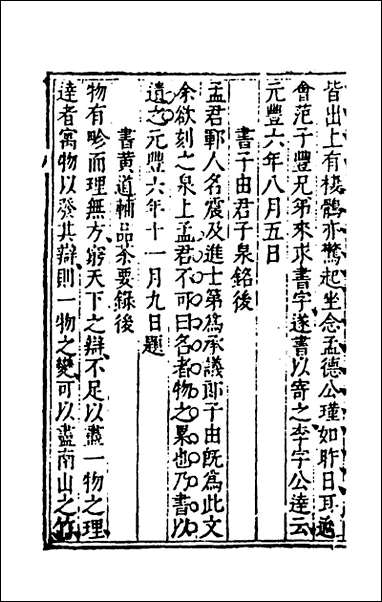 皆出上有棲鶻亦驚起坐念孟德公瑾如昨日耳適
會范子豐兄弟來求書字遂書以寄之李字公達云
元豐六年八月五日
書子由君子泉銘後
孟君鄆人名震及進士第爲承議郎子由旣爲此文
余欲刻之泉上孟君不可曰名者物之累也乃書以
遺之元豐六年十一月九日題
書黄道輔品茶要錄後
物有畛而理無方窮天下之辯不足以盡一物之理
達者寓物以發其辯則一物之變可以盡南山之竹